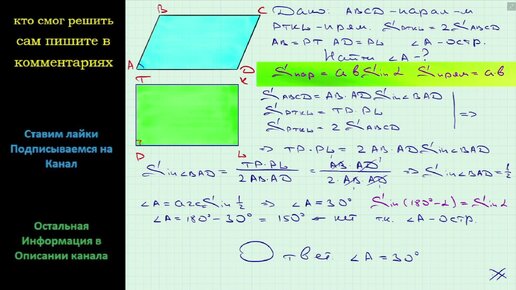 кто смог решить
сам пишите в
комментариях
Ставим лайки
Подписываемся на
Канал
Остальная
Информация в
Описании канала
B C
A D
T K
P L
Дано: ABCD-парал-м
PTKL-прям. SPTKL = 2SABCD
AB=PT AD=PL ∠A-остр.
Найти ∠A-?
Sпар = ab Sin α Sпрям = ab
SABCD = AB·AD Sin∠BAD
SPTKL = TP·PL ⇒
SPTKL = 2 SABCD
⇒ TP·PL = 2 AB·AD Sin∠BAD
Sin∠BAD = TP·PL / 2AB·AD = AB·AD / 2·AB·AD ⇒ Sin∠BAD = 1/2
∠A = arcSin 1/2 ⇒ ∠A = 30° Sin(180°-α) = Sin α
∠A = 180° - 30° = 150° - нет т.к. ∠A-остр.
Ответ ∠A = 30°